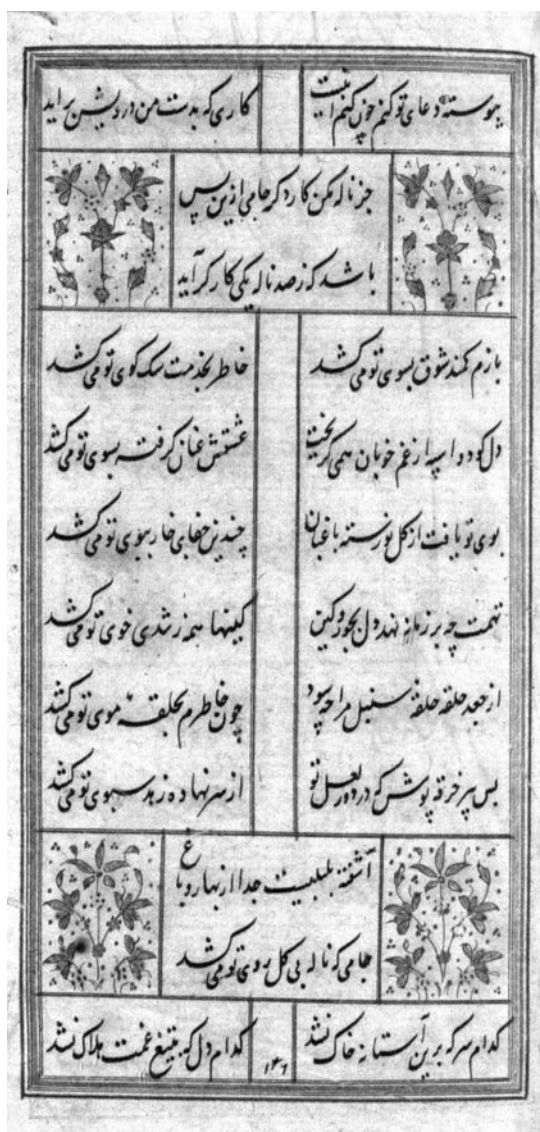 پیوسته دعای تو کنم چون کنم اینست کاری که بدست من درویش برآید
جز ناله مکن کار دگر جامی ازین پس
باشد که ز صد ناله یکی کارگر آید
بازم کمند شوق بسوی تو می‌کشد خاطر بخدمت سگ کوی تو می‌کشد
دل کو دو اسپه از غم خوبان همی گریخت عشقش عنان گرفته بسوی تو می‌کشد
بوی تو یافت از گل نورسته باغبان چندین جفای خار ببوی تو می‌کشد
تهمت چه بر زمانه نهد دل بجور و کین کینها همه ز تندی خوی تو می‌کشد
از جعد حلقه حلقه سنبل مرا چه سود چون خاطرم بحلقه موی تو می‌کشد
بس پیر خرقه پوش که در دور لعل تو از سر نهاده زهد سبوی تو می‌کشد
آشفته بلبلیست جدا از بهار و باغ
جامی که ناله بی گل روی تو می‌کشد
کدام سر که برین آستانه خاک نشد کدام دل که بتیغ غمت هلاک نشد
۱۴۶